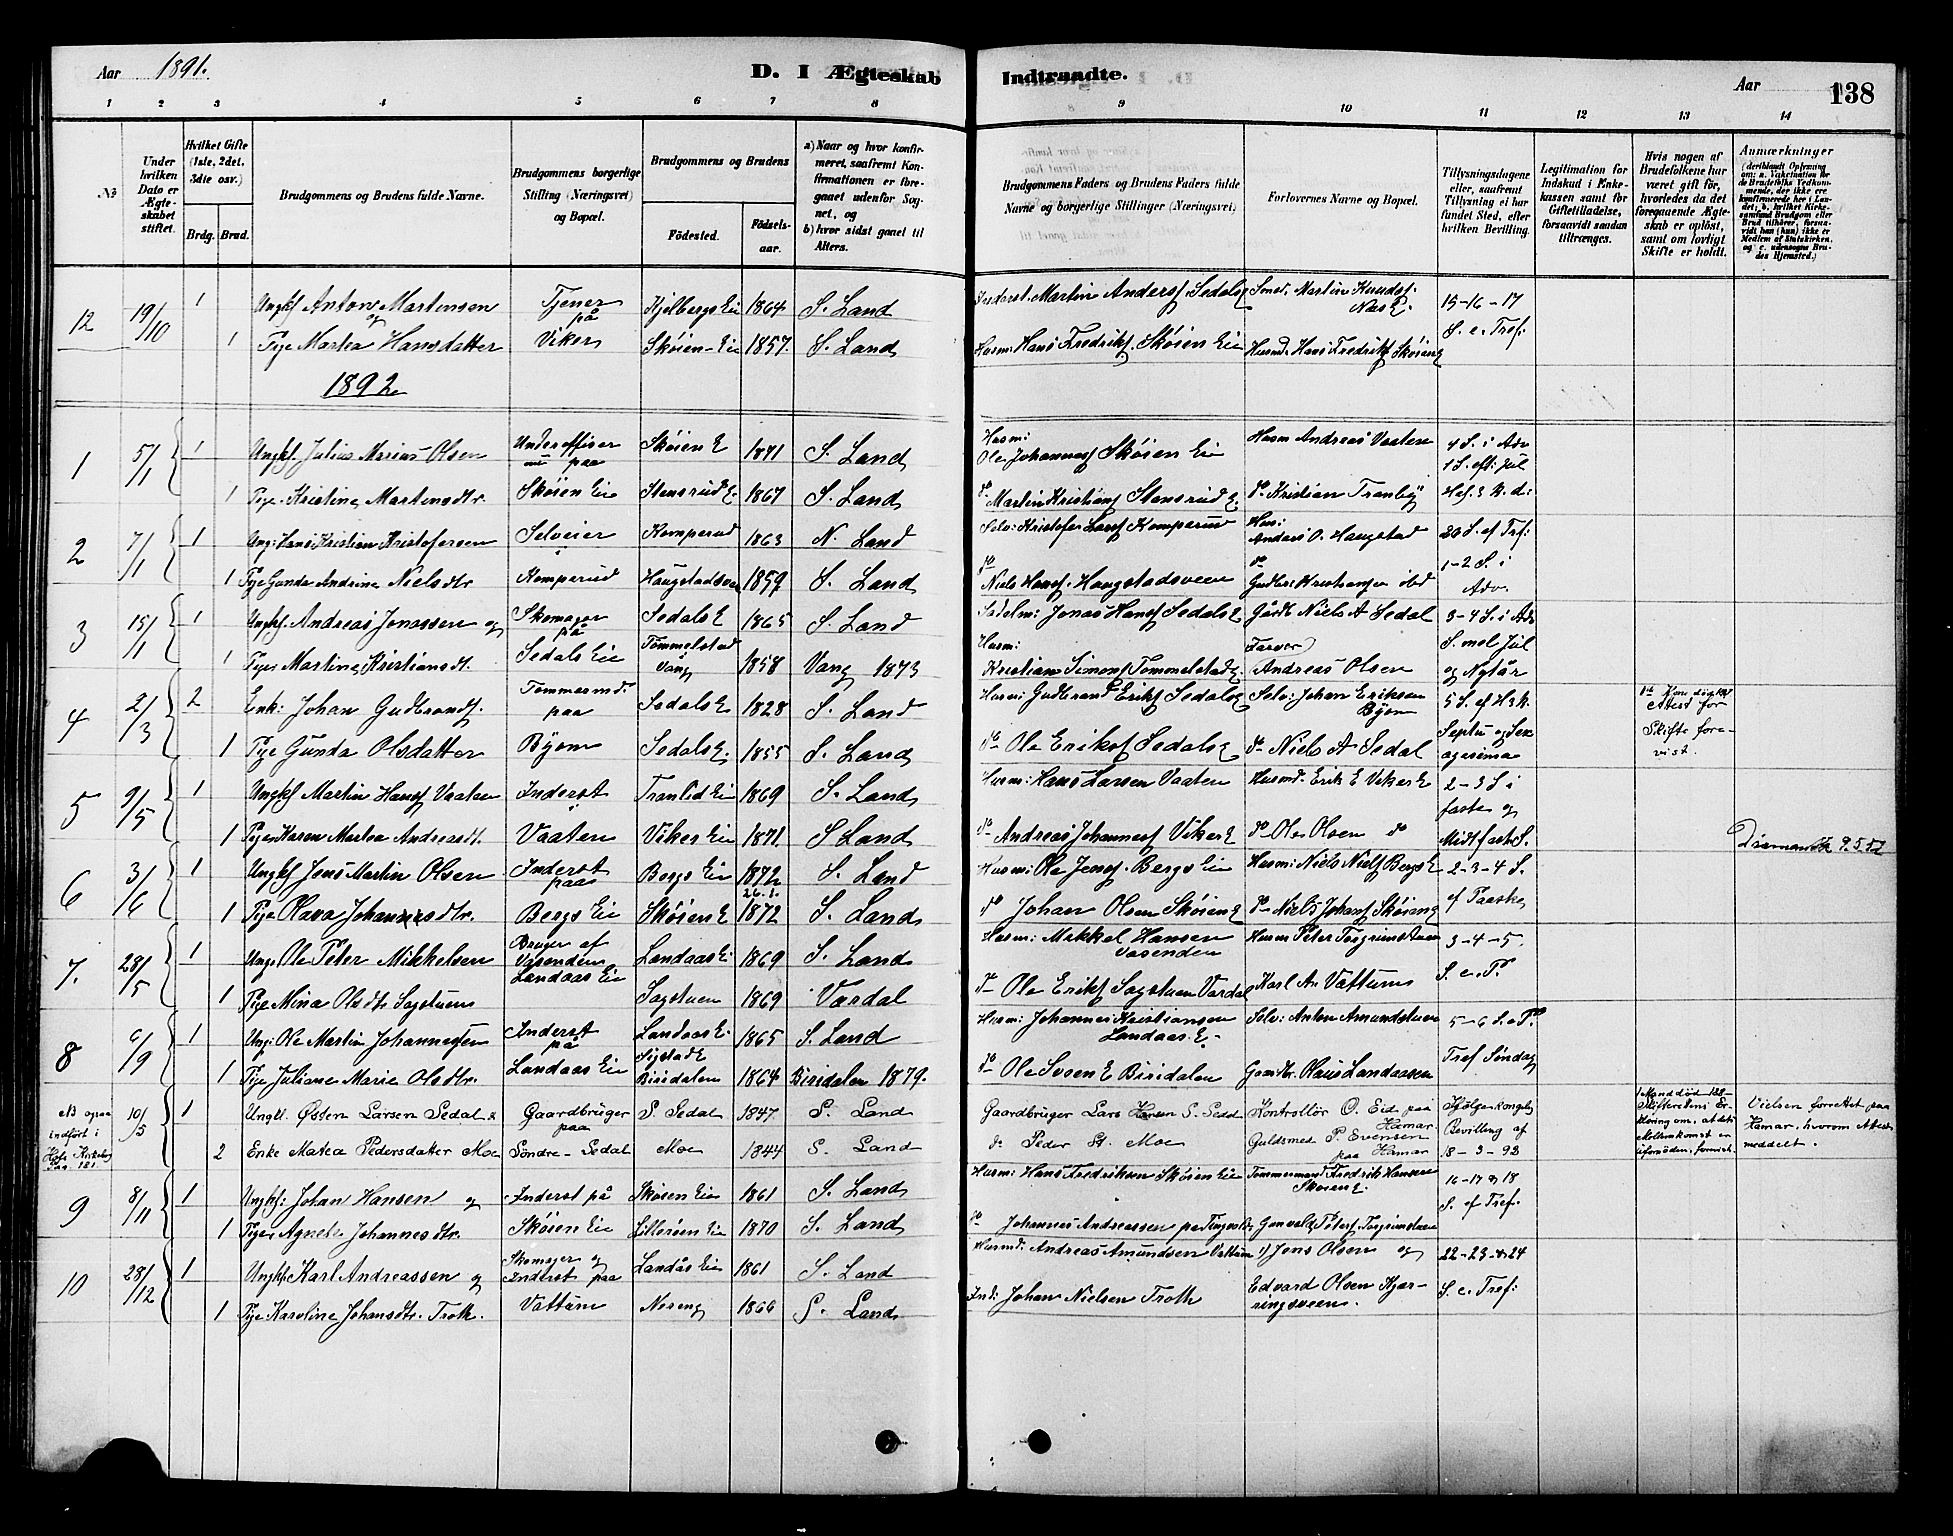 Aar 1891.
D. I Ægteskab Indtraadte.
Aar
138
1 2 3 4 5 6 7 8 9 10 11 12 13 14
No
Under hvilken Dato er Ægteskabet stiftet.
Hvilket Gifte (1ste, 2det, 3die osv.)
Brdg. Brud.
Brudgommens og Brudens fulde Navne.
Brudgommens borgerlige Stilling (Næringsvei) og Bopæl.
Brudgommens og Brudens
Födested.
Födselsaar.
a) Naar og hvor konfirmeret, saafremt Konfirmationen er foregaaet udenfor Sognet, og
b) hvor sidst gaaet til Alters.
Brudgommens Faders og Brudens Faders fulde Navne og borgerlige Stillinger (Næringsvei)
Forlovernes Navne og Bopæl.
Tillysningsdagene eller, saafremt Tillysning ei har fundet Sted, efter hvilken Bevilling.
Legitimation for Indskud i Enkekassen samt for Giftetilladelse, forsaavidt saadan tiltrænges.
Hvis nogen af Brudefolkene har været gift för, hvorledes da det foregaaende Ægteskab er oplöst, samt om lovligt Skifte er holdt.
Anmærkninger
12 19/10 1 Ungkf Anton Martinsen og Tjener på Kjelbergs Eie 1864 S. Land Martin Anders. Sedals E 15-16-17
1 Pige Martea Hansdatter Viker Skøien-Eie 1857. S. Land Husm: Hans Fredriks. Skøien Eie Husmd. Hans Fredriks. Skøiens E S. e. Tref:
1892
1 5/1 1 Ungkf. Julius Marius Olsen Underoffiser paa Skøien E 1871 S. Land Husm: Ole Johannes. Skøien Eie Husm Andreas Vaaten 4 S. i Adv 1 S. eft: Jul
1 Pige Kristine Martinsdtr. Skøien Eie Stensrud E. 1867 S. Land do Martin Kristians. Stensrud E. do Kristian Tranby
2 7/1 1 Ung: Hans Kristian Kristofersen Selveier Komperud 1863 N. Land Selv: Kristofer Lars. Komperud Hus: Andreas O. Haugstad 20 S. ef Tref:
1 Pige Gunda Andrine Nielsdtr. Komperud Haugstadsveen 1859 S. Land do Niels Hans. Haugstadsveen do Gudbr: Kristiansen ibid 1-2 S. i Adv.
3 15/1 1 Ungkf. Andreas Jonassen og Skomager på Sedals E 1865 S. Land Jonas Hans. Sedals E Gårdb. Niels A Sedal 3-4 S. i Adv
1 Pige Martine Kristiansdt. Sedals Eie Tømmelstad Vang 1858 Vang 1873 Husm: Kristian Simons. Tommelstad E Farver Andreas Olsen S. mel Jul og Nytår
4 2/3 2 Enk: Johan Gudbrands. Tømmermd. paa Sedals E 1828 S. Land Husm: Gudbrand Eriks. Sedals E Selv: Johan Eriksen Byom 5 S. ef H3K. Attest for Skifte forevist.
1 Pige Gunda Olsdatter Byom Sedals E. 1855 S. Land do Ole Eriks. Sedals E do Niels A Sedal Septu og Sexagesima
5 9/5 1 Ungkf Martin Hans. Vaaten Inderst i Tranlid Eie 1869 S. Land Husm: Hans Larsen Vaaten Husmd. Erik E Viker E 2-3 S i faste og
1 Pige Karen Martea Andreasdt. Vaaten Viker Eie 1871. S Land do Andreas Johannes. Viker E do Ole Olsen do Midfaste S. 9.5.52
6 3/6 1 Ungkf Jens Martin Olsen Inderst paa Bergs Eie 1872 S. Land Husm: Ole Jens. Bergs Eie Husm: Niels Niels. Bergs E 2-3-4 S.
1 Pige Olava Johannesdtr. Bergs Eie Skøien E 26.1. 1872 S. Land do Johan Olsen Skøien E do Niels Johans. Skøiens E ef Paaske
7. 28/5 1 Ung. Ole Peter Mikkelsen Bruger af Vasenden Landaas Eie Landaas E. 1869 S. Land Husm: Mikkel Hansen Vasenden Husm Peter Torgrimstuen 3-4-5.
1 Pige Mina Olsdtr Sagstuen Sagstuen 1869 Vardal do Ole Eriks. Sagstuen Vardal Karl An Vattum S. e. P.
8 6/9 1 Ung: Ole Martin Johannessen Inderst på Landaas E. 1865 S. Land Husm: Johannes Kristiansen Landaas E. Selv: Anton Amundstuen 5-6 S. e P.
1 Pige Juliane Marie Olsdtr. Landaas Eie Biridalen 1864 Biridalen 1879. do Ole Svesen E Biridalen Gaardbr. Olaus Landaasen Tref Søndag
10/5 1 Ungkf. Østen Larsen Sedal & Gaardbruger paa S. Sedal 1847 S. Land Gaardbruger Lars Hansen S. Sedal Kontrollør O. Eid paa Hamar Ifølge kongel. Bevilling af 18-3-92
indført i
2 Enke Matea Pedersdatter Moe Søndre-Sedal Moe 1844 S. Land do Peder St. Moe Guldsmed P. Evensen paa Hamar
Vielsen forrettet paa Hamar, hvorom Attest meddelt.
9 8/11 1 Ungkf: Johan Hansen og Inderst på Skøien Eie 1861 S. Land Husm: Hans Fredriksen Skøien Eie Tømmermand Fredrik Hansen Skøien E. 16-17 & 18
1 Pige Agnete Johannesdtr. Skøien Eie Lillerøen Eie 1870 S. Land do Johannes Andreassen S. ef Tref.
10 28/12 1 Ungkf. Karl Andreassen og Skomager og Inderst paa Landås Eie 1861 S. Land Husmd. Andreas Amundsen Vattum 1) Jens Olsen og 22-23 & 24
1 Pige Karoline Johansdtr. Troth. Vattum Noreng 1866 S. Land Ind: Johan Nielsen Troth Edvard Olsen Kjærringsveen. S. e. Tref: